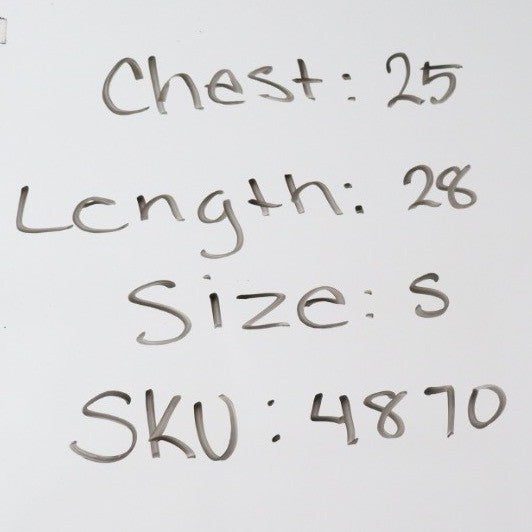 Chest: 25
Length: 28
Size: S
SKU: 4870